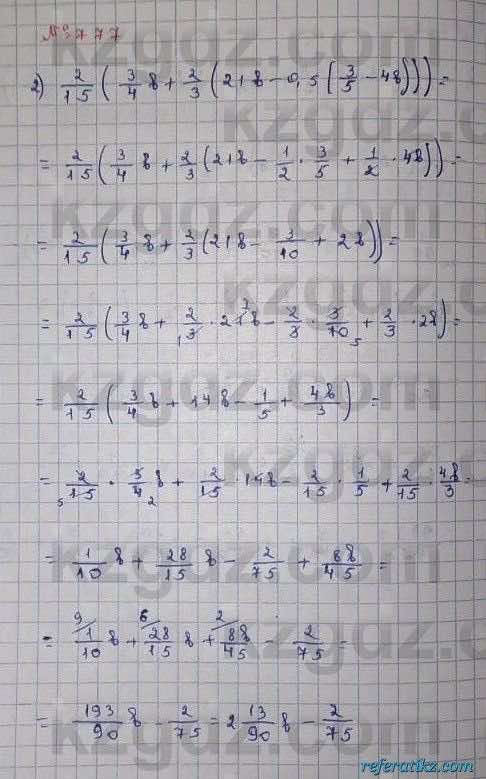 №777
2) 2/15 (3/4 в + 2/3 (21в - 0,5 (3/5 - 4в))) =
= 2/15 (3/4 в + 2/3 (21в - 1/2 · 3/5 + 1/2 · 4в)) =
= 2/15 (3/4 в + 2/3 (21в - 3/10 + 2в)) =
= 2/15 (3/4 в + 2/3 · 21в - 2/3 · 3/10 + 2/3 · 2в) =
= 2/15 (3/4 в + 14в - 1/5 + 4в/3) =
= 2/15 · 3/4 в + 2/15 · 14в - 2/15 · 1/5 + 2/15 · 4в/3 =
= 1/10 в + 28/15 в - 2/75 + 8в/45 =
= 1/10 в + 28/15 в + 8в/45 - 2/75 =
= 193/90 в - 2/75 = 2 13/90 в - 2/75
kzgdz.com
referatikz.com